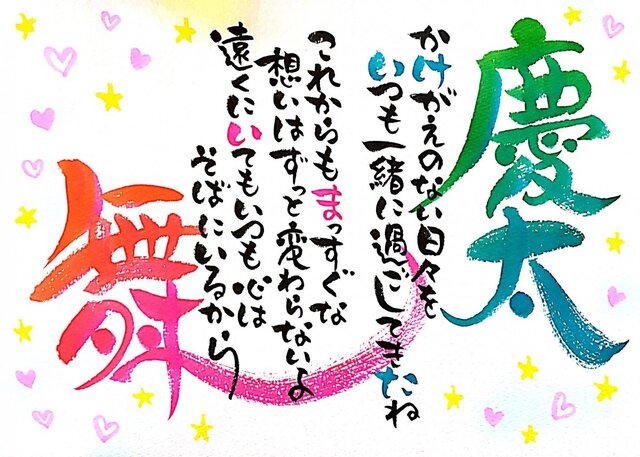 慶太
かけがえのない日々を
いつも一緒に過ごしてきたね
これからもまっすぐな
想いはずっと変わらないよ
遠くにいてもいつも心は
そばにいるから
舞